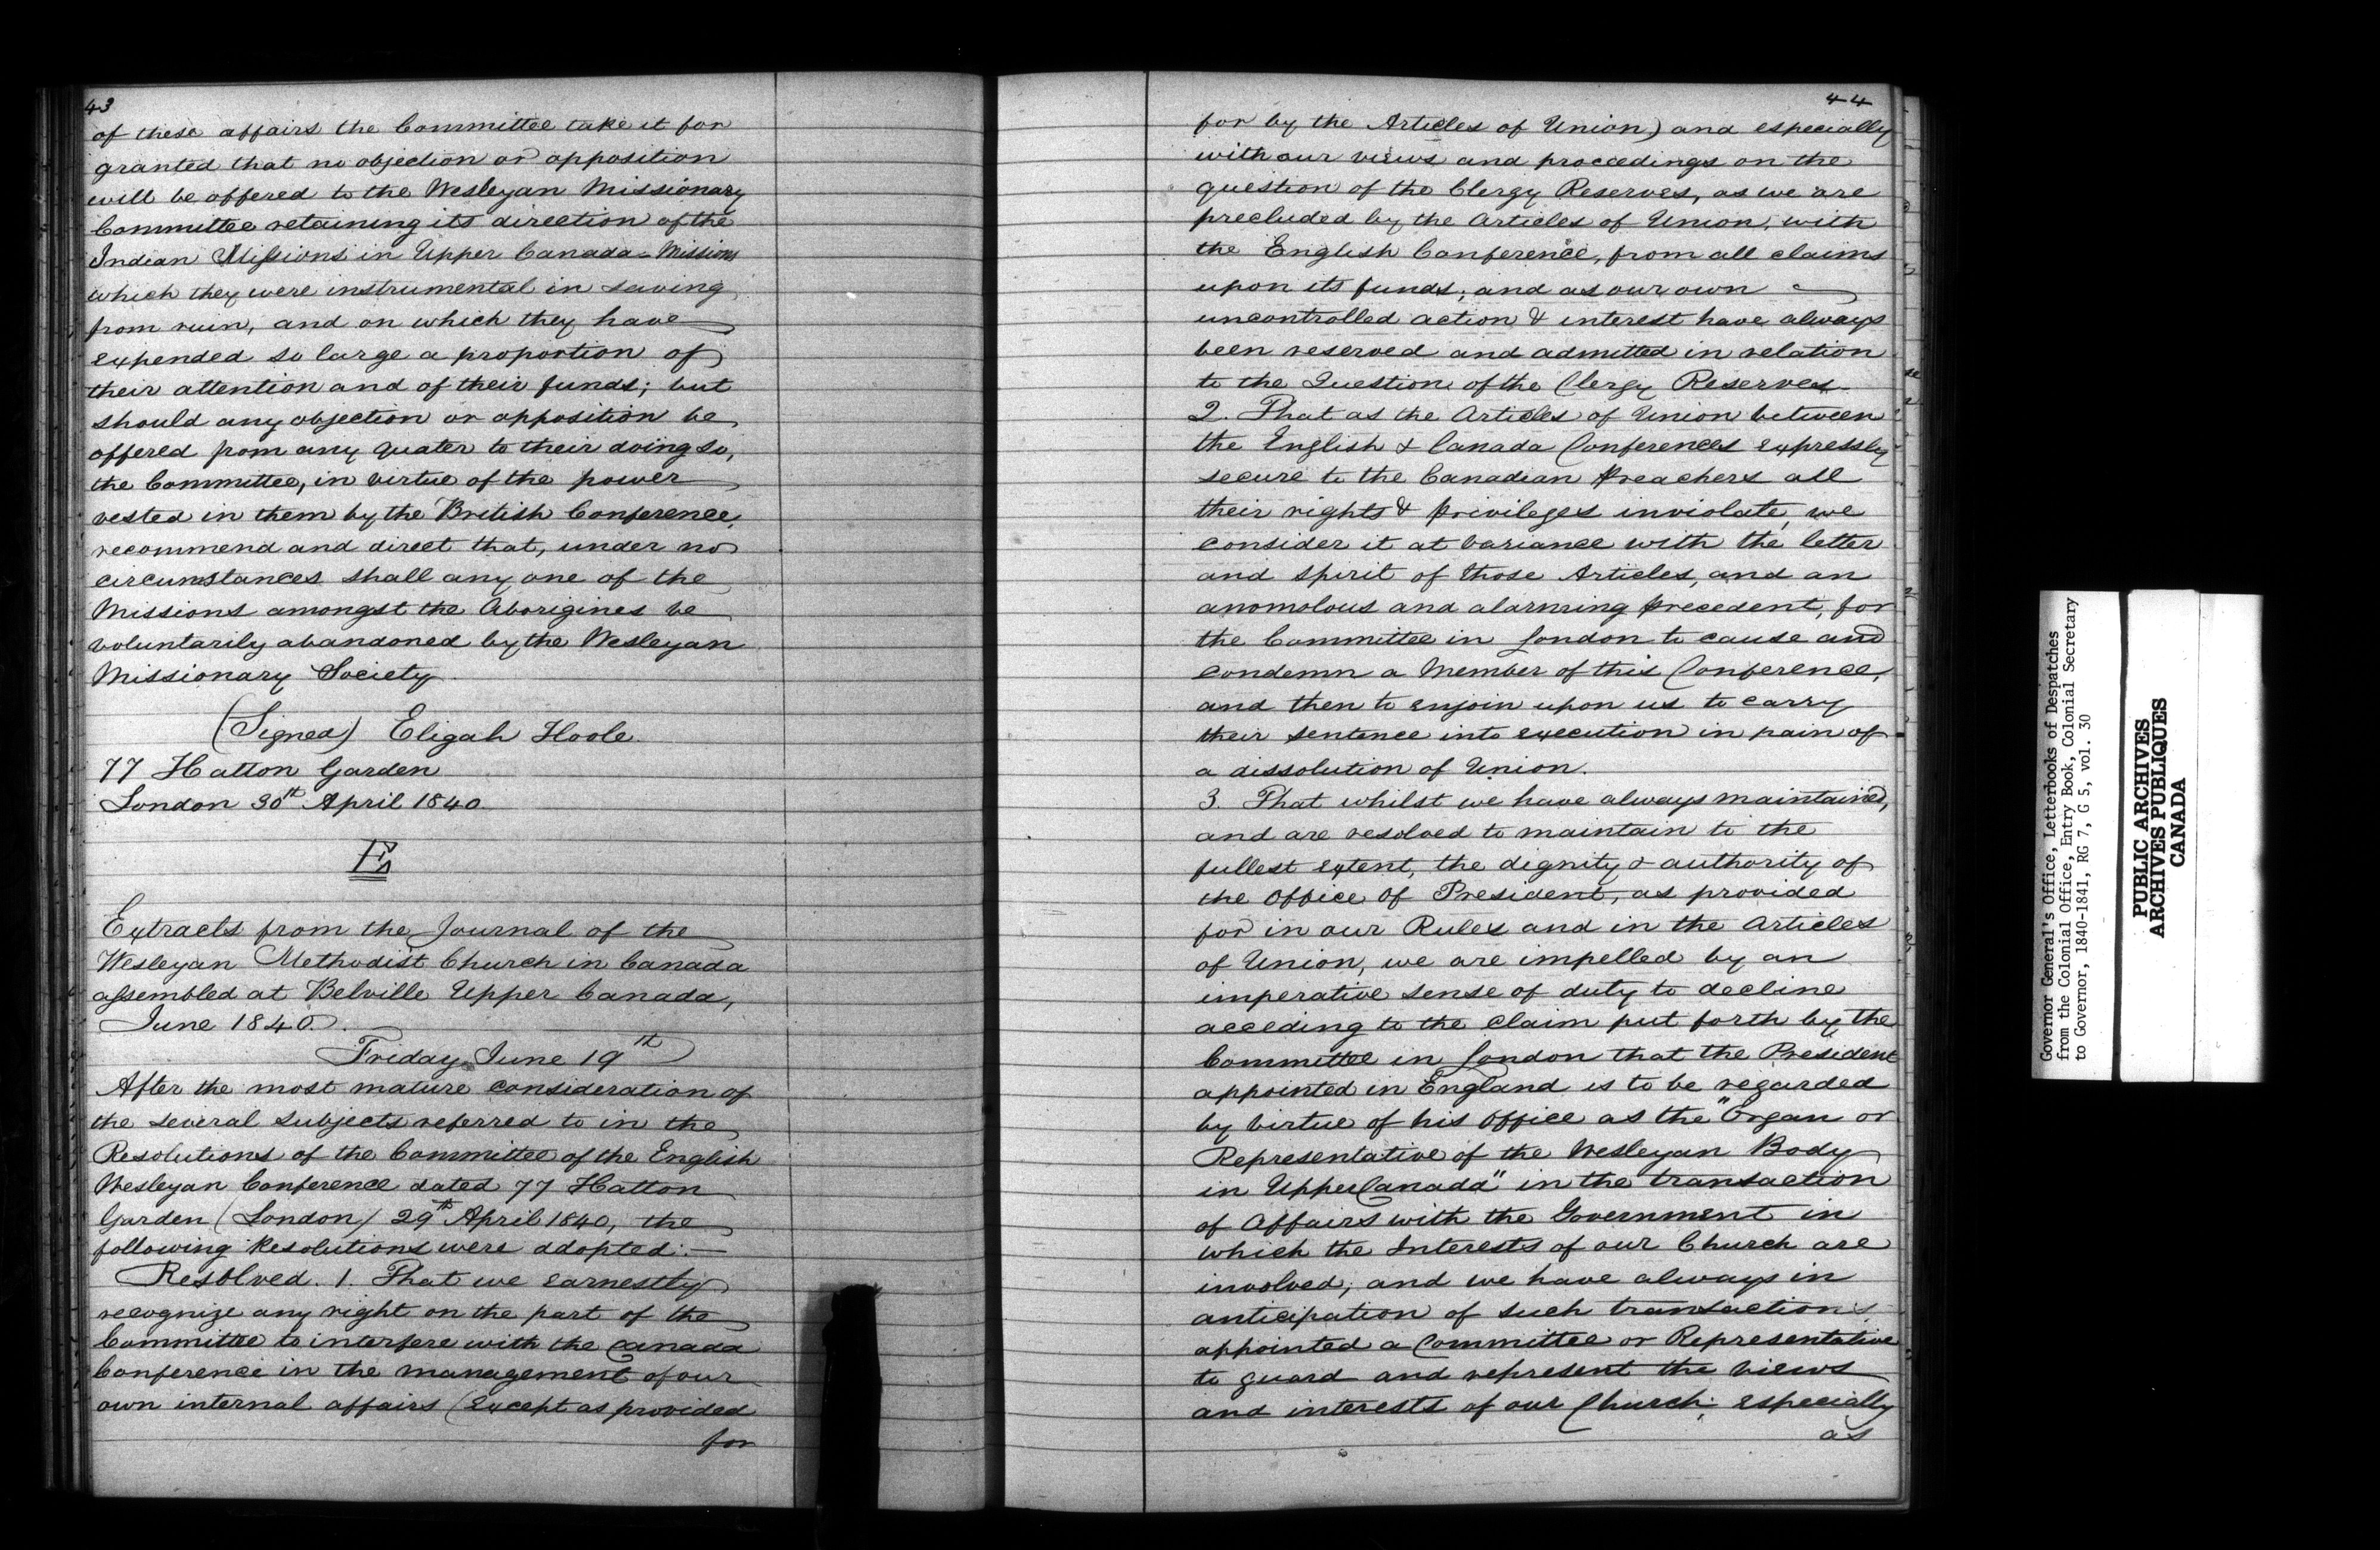 43
of these affairs the Committee take it for
granted that no objection or opposition
will be offered to the Wesleyan Missionary
Committee retaining its direction of the
Indian Missions in Upper Canada - Missions
which they were instrumental in saving
from ruin, and on which they have
expended so large a proportion of
their attention and of their funds; but
should any objection or opposition be
offered from any quater to their doing so,
the Committee, in virtue of the power
vested in them by the British Conference,
recommend and direct that, under no
circumstances shall any one of the
Missions amongst the Aborigines be
voluntarily abandoned by the Wesleyan
Missionary Society.
(Signed) Eligah Hoole.
77 Hatton Garden
London 30th April 1840
E
Extracts from the Journal of the
Wesleyan Methodist Church in Canada
assembled at Belville Upper Canada,
June 1840.
Friday June 19th
After the most mature consideration of
the several subjects referred to in the
Resolutions of the Committee of the English
Wesleyan Conference dated 77 Hatton
Garden (London) 29th April 1840, the
following Resolutions were adopted:—
Resolved. 1. That we earnestly
recognize any right on the part of the
Committee to interfere with the Canada
Conference in the management of our
own internal affairs (except as provided
for
44
for by the Articles of Union) and especially
with our views and proceedings on the
question of the Clergy Reserves, as we are
precluded by the Articles of Union, with
the English Conference, from all claims
upon its funds; and as our own
uncontrolled action & interest have always
been reserved and admitted in relation
to the Question of the Clergy Reserves.
2. That as the Articles of Union between
the English & Canada Conferences expressly
secure to the Canadian Preachers all
their rights & privileges inviolate, we
consider it at variance with the letter
and spirit of those Articles, and an
anomolous and alarming precedent, for
the Committee in London to cause and
condemn a Member of this Conference,
and then to enjoin upon us to carry
their sentence into execution in pain of
a dissolution of Union.
3. That whilst we have always maintained,
and are resolved to maintain to the
fullest extent, the dignity & authority of
the Office of President, as provided
for in our Rules and in the Articles
of Union, we are impelled by an
imperative sense of duty to decline
acceding to the claim put forth by the
Committee in London that the President
appointed in England is to be regarded
by virtue of his Office as the "Organ or
Representative of the Wesleyan Body
in Upper Canada" in the transaction
of Affairs with the Government in
which the Interests of our Church are
involved; and we have always in
anticipation of such transactions
appointed a Committee or Representative
to guard and represent the views
and interests of our Church; especially
as
Governor General's Office, Letterbooks of Despatches
from the Colonial Office, Entry Book, Colonial Secretary
to Governor, 1840-1841, RG 7, G 5, vol. 30
PUBLIC ARCHIVES
ARCHIVES PUBLIQUES
CANADA